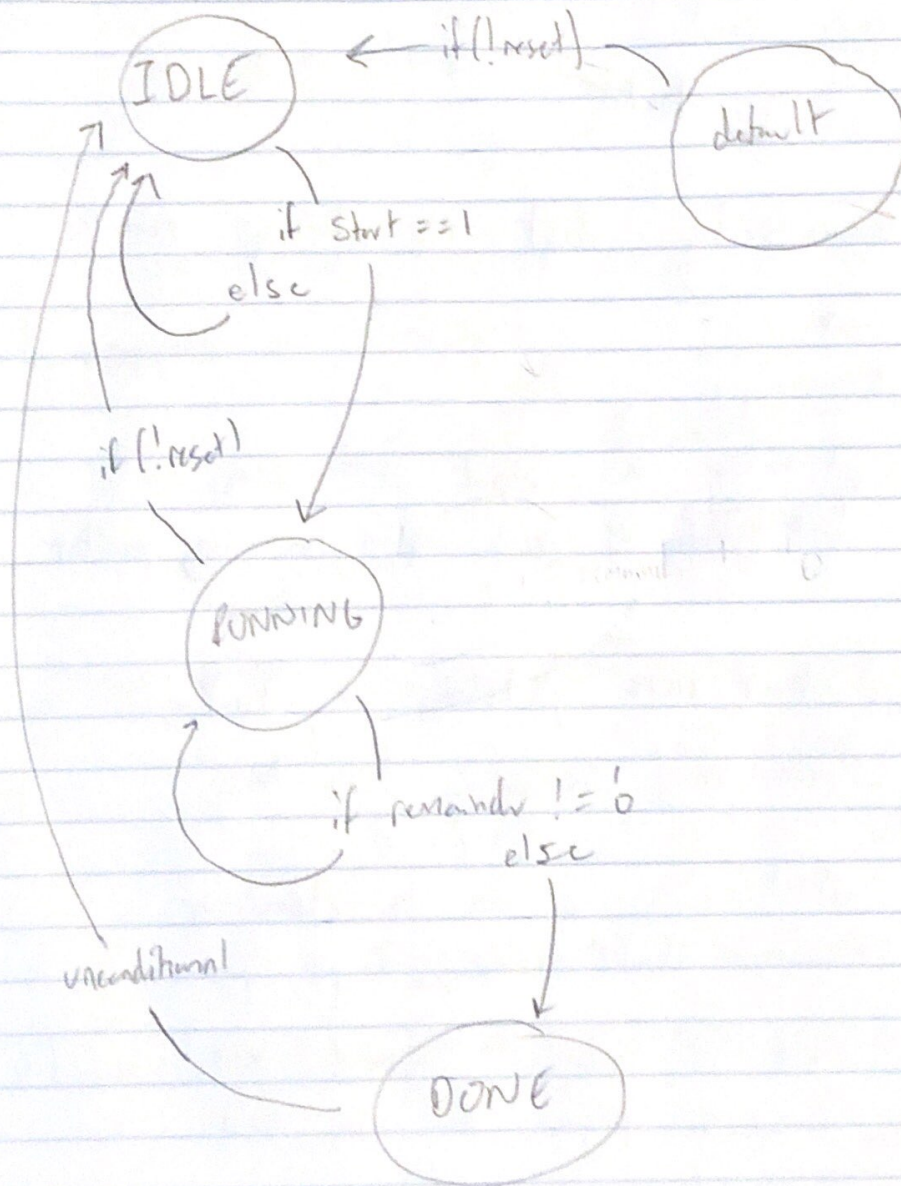 if(!reset)
IDLE
default
if start ==1
else
if (!reset)
RUNNING
if remainder != '0
else
unconditional
DONE